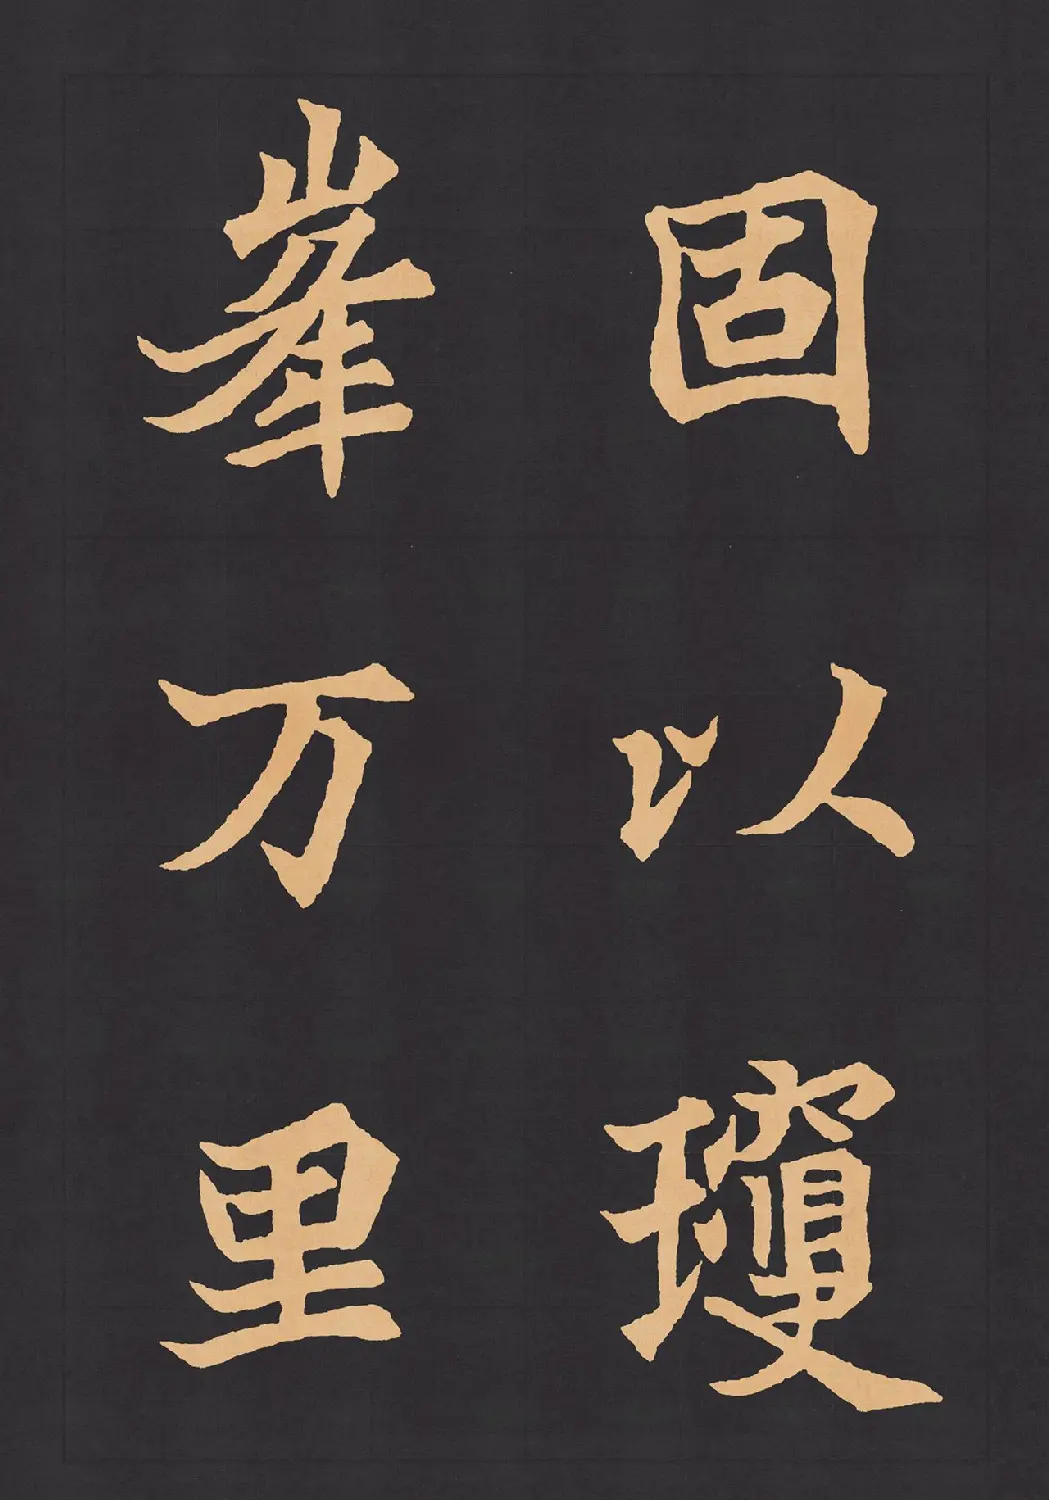 固以瓊
峯万里